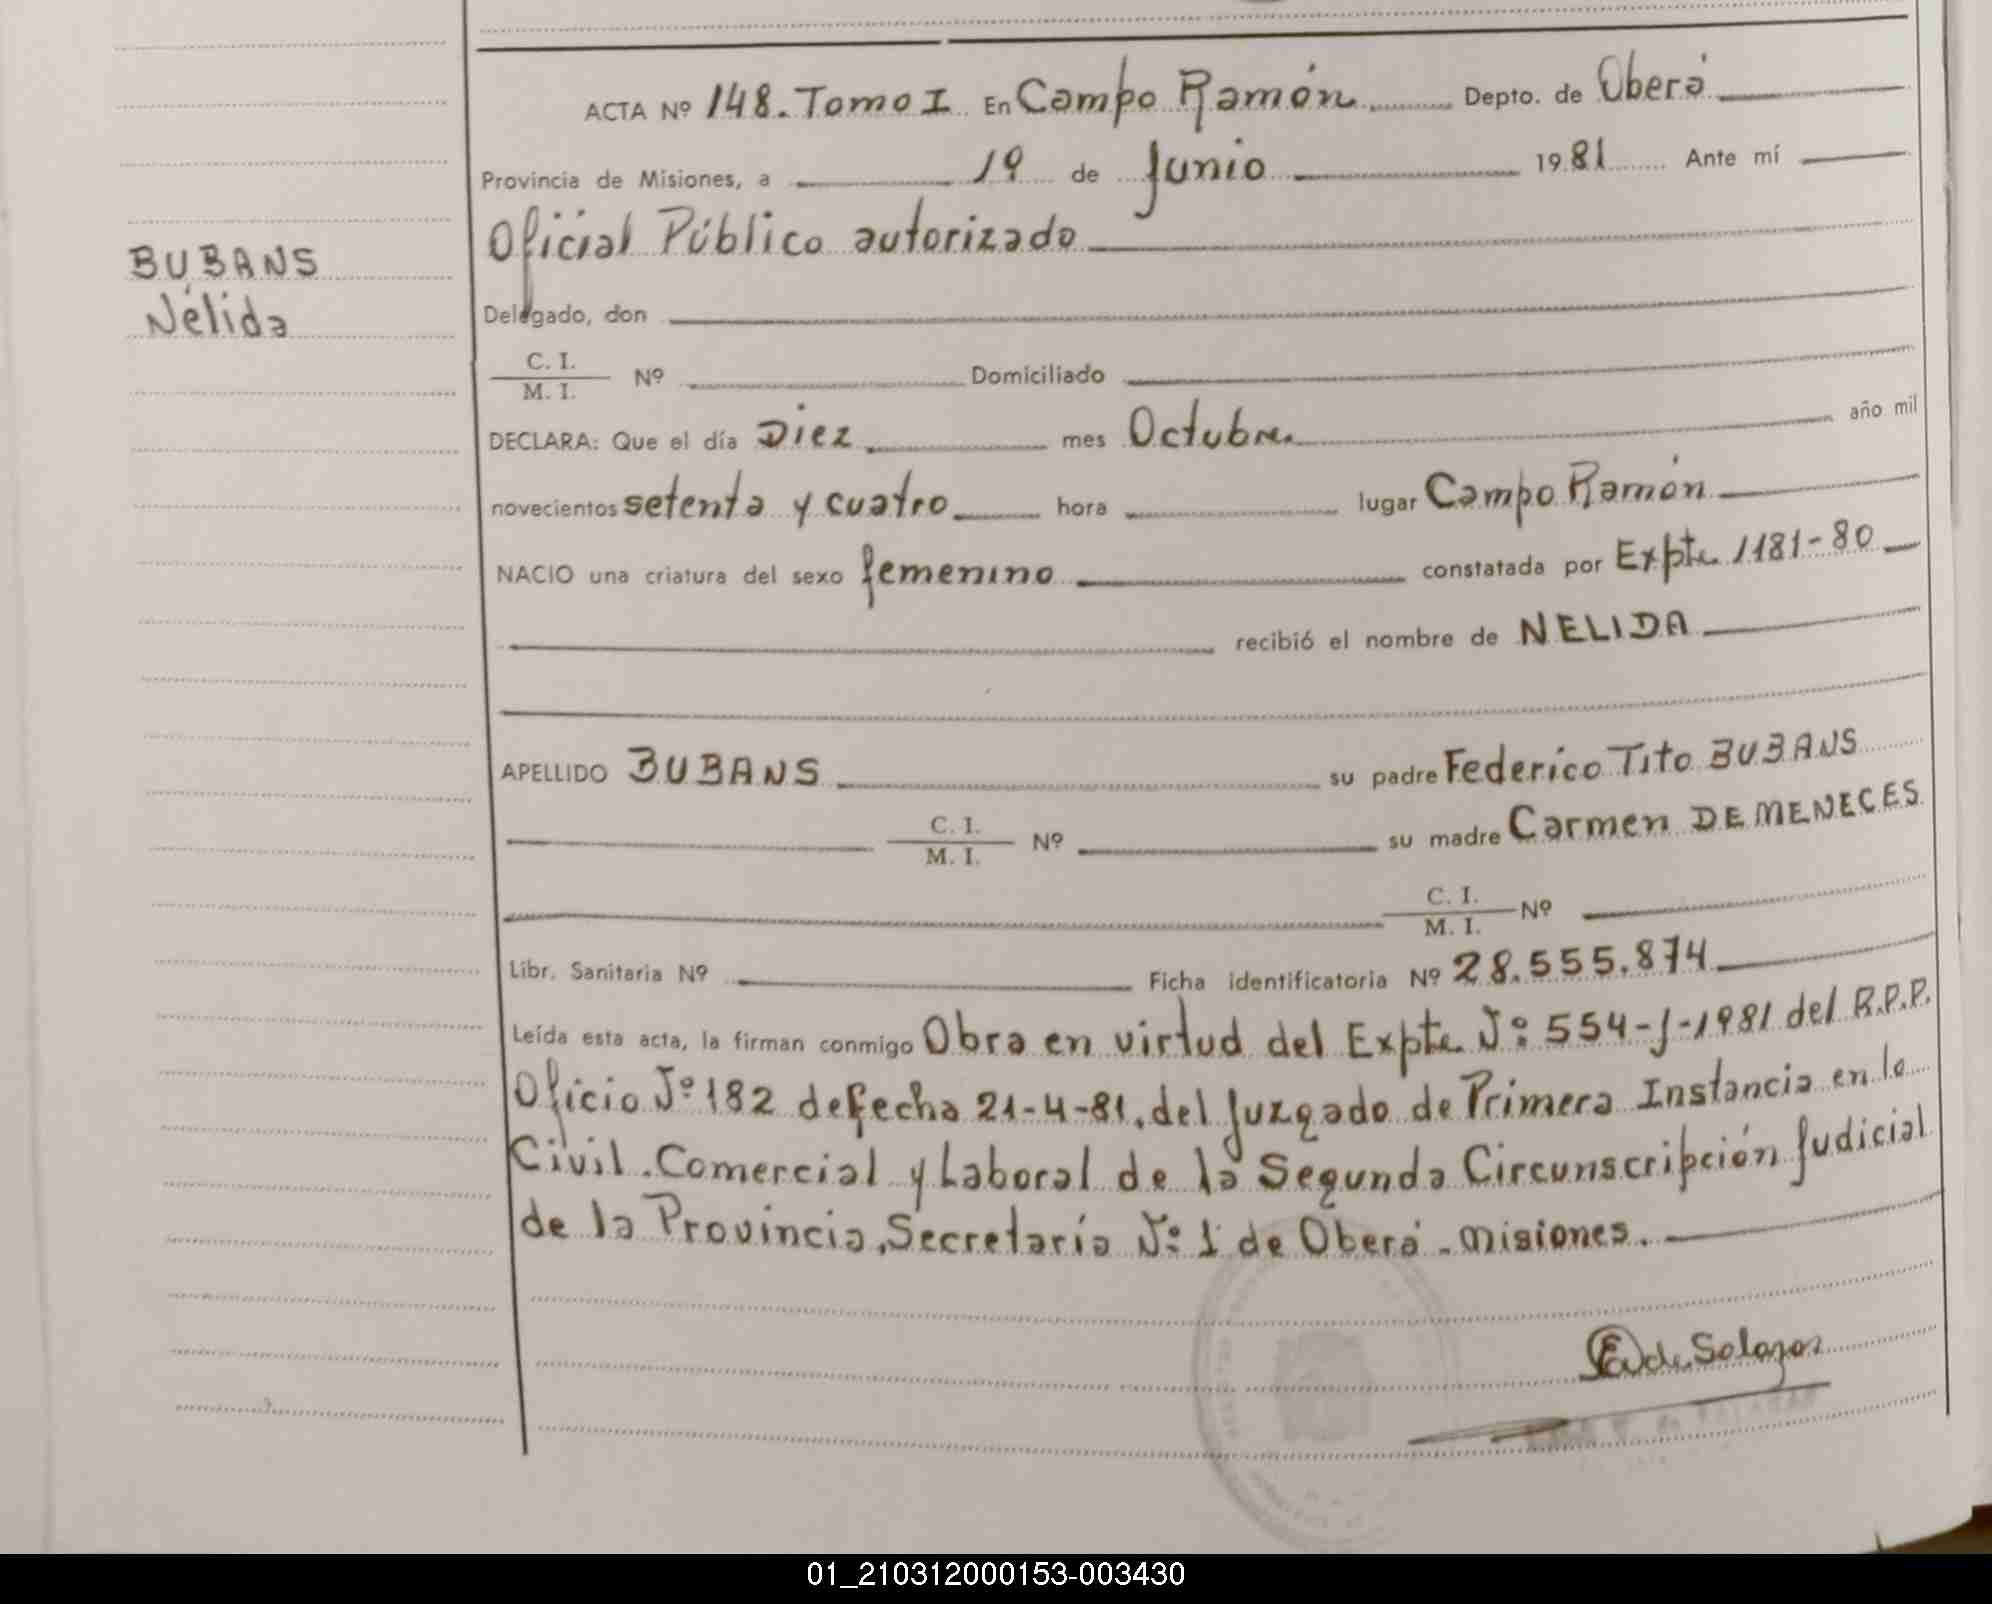 ACTA Nº 148. Tomo I En Campo Ramón Depto. de Oberá
Provincia de Misiones, a 1º de Junio 1981 Ante mí
Oficial Público autorizado
BUBANS
Nélida
Delegado, don
C. I.
M. I. Nº Domiciliado
DECLARA: Que el día Diez mes Octubre año mil
novecientos setenta y cuatro hora lugar Campo Ramón
NACIO una criatura del sexo femenino constatada por Expte 1181-80
recibió el nombre de NELIDA
APELLIDO BUBANS su padre Federico Tito BUBANS
C. I.
M. I. Nº su madre Carmen DE MENECES
C. I.
M. I. Nº
Libr. Sanitaria Nº Ficha identificatoria Nº 28.555.874
Leída esta acta, la firman conmigo Obra en virtud del Expte Nº 554-J-1981 del R.P.P.
Oficio Nº 182 de fecha 21-4-81, del Juzgado de Primera Instancia en lo
Civil. Comercial y Laboral de la Segunda Circunscripción Judicial
de la Provincia, Secretaría Nº 1 de Oberá - Misiones.
de Salazar
de SALAZAR
01_210312000153-003430